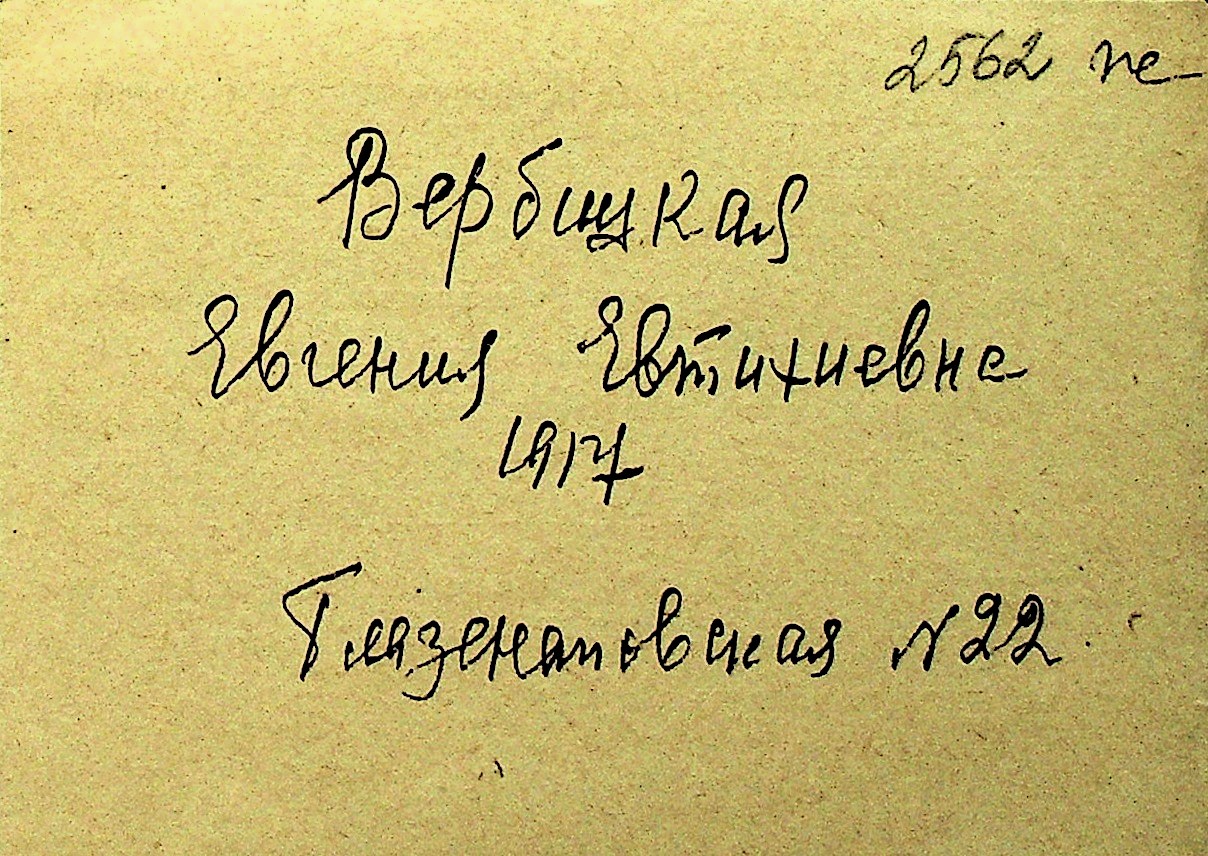 2562 пе
Вербицкая
Евгения Евтихиевна
1917
Глазенаповская №22